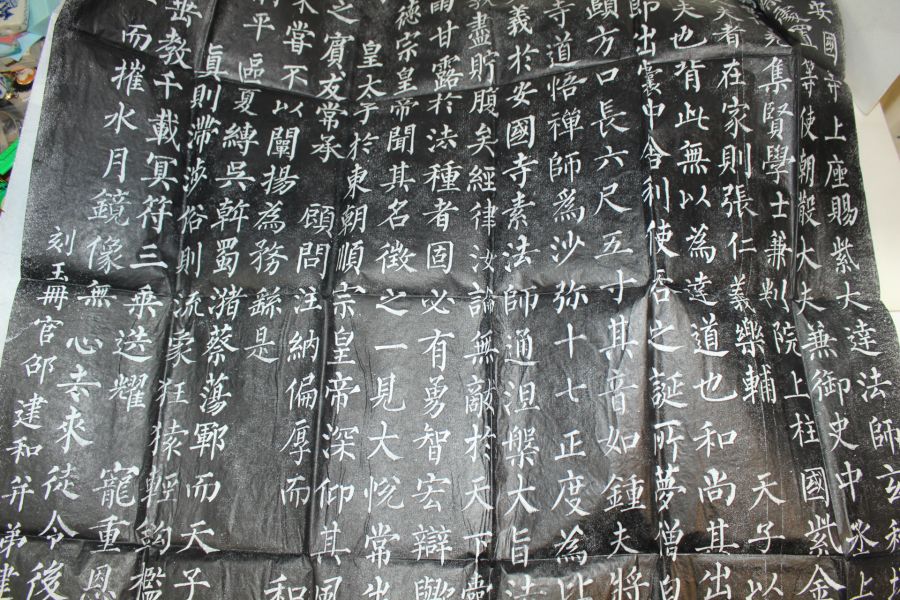 安國寺上座賜紫大達法師玄秘塔
等使朝散大夫兼御史中丞上
集賢學士兼判院上柱國紫金
夫者在家則張仁義樂輔 天子以
夫也背此無以為達道也和尚其出
即出囊中舍利使吞之誕所夢僧白
顯方口長六尺五寸其音如鍾夫將
寺道悟禪師為沙弥十七正度為比
義於安國寺素法師通涅槃大旨法
盡貯腹矣經律汝論無敵於天下囊
雨甘露於法種者固必有勇智宏辯歟
德宗皇帝聞其名徵之一見大悅常出
皇太子於東朝順宗皇帝深仰其風
之賓友常承 顧問注納偏厚而
嘗不以闡揚為務繇是 和
平區夏縛吳斡蜀潴蔡蕩鄆而天子
真則滯涉俗則流象狂猿輕鈎檻
丗教千載冥符三乘迭耀 寵重恩
而摧水月鏡像無心去來徒令後
刻玉冊官邵建和并弟建